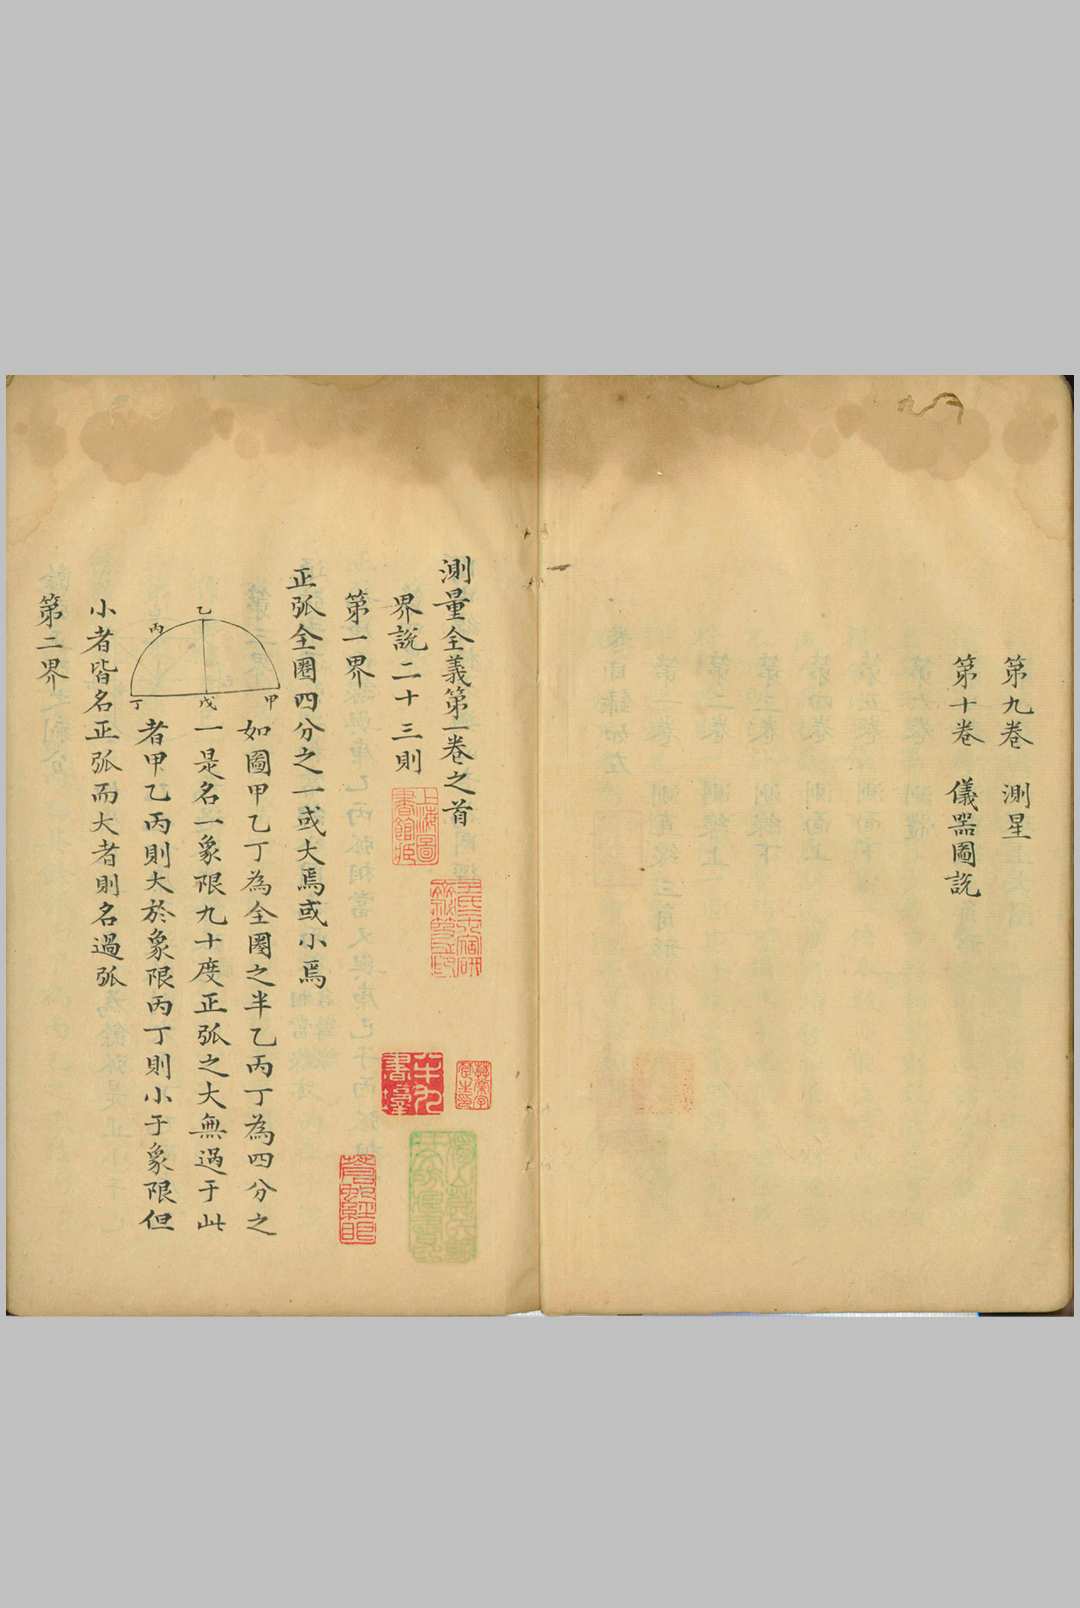 第九卷　測星
第十卷　儀器圖説
測量全義第一卷之首
界説二十三則
第一界
正弧全圏四分之一或大焉或小焉
如圖甲乙丁為全圏之半乙丙丁為四分之
一是名一象限九十度正弧之大無過于此
者甲乙丙則大於象限丙丁則小于象限但
小者皆名正弧而大者則名過弧
第二界
乙
丙
丁
戊
甲
上海圖
書館藏